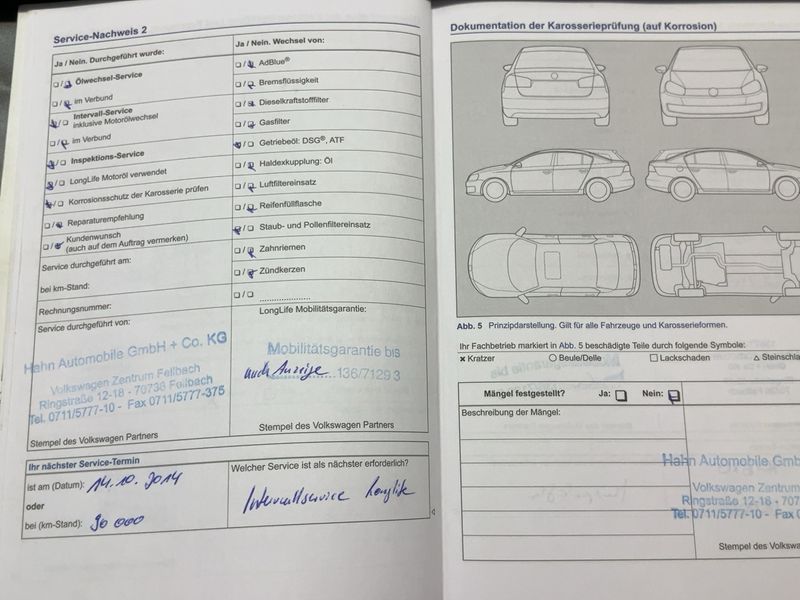 Service-Nachweis 2
Ja / Nein. Durchgeführt wurde:
Ölwechsel-Service
im Verbund
Intervall-Service
inklusive Motorölwechsel
im Verbund
Inspektions-Service
LongLife Motoröl verwendet
Korrosionsschutz der Karosserie prüfen
Reparaturempfehlung
Kundenwunsch
(auch auf dem Auftrag vermerken)
Service durchgeführt am:
bei km-Stand:
Rechnungsnummer:
Service durchgeführt von:
Hahn Automobile GmbH + Co. KG
Volkswagen Zentrum Fellbach
Ringstraße 12-18 - 70736 Fellbach
Tel. 0711/5777-10 - Fax 0711/5777-375
Stempel des Volkswagen Partners
Ja / Nein. Wechsel von:
AdBlue®
Bremsflüssigkeit
Dieselkraftstofffilter
Gasfilter
Getriebeöl: DSG®, ATF
Haldexkupplung: Öl
Luftfiltereinsatz
Reifenfüllflasche
Staub- und Pollenfiltereinsatz
Zahnriemen
Zündkerzen
LongLife Mobilitätsgarantie:
Mobilitätsgarantie bis
nach Anzeige 136/7129 3
Stempel des Volkswagen Partners
Ihr nächster Service-Termin
ist am (Datum): 14.10.2014
oder
bei (km-Stand): 90 000
Welcher Service ist als nächster erforderlich?
Intervallservice Longlife
Dokumentation der Karosserieprüfung (auf Korrosion)
Abb. 5 Prinzipdarstellung. Gilt für alle Fahrzeuge und Karosserieformen.
Ihr Fachbetrieb markiert in Abb. 5 beschädigte Teile durch folgende Symbole:
× Kratzer ○ Beule/Delle □ Lackschaden △ Steinschla
Mängel festgestellt? Ja: Nein:
Beschreibung der Mängel:
Hahn Automobile Gmb
Volkswagen Zentrum
Ringstraße 12-18 - 707
Tel. 0711/5777-10 - Fax 0
Stempel des Volkswa